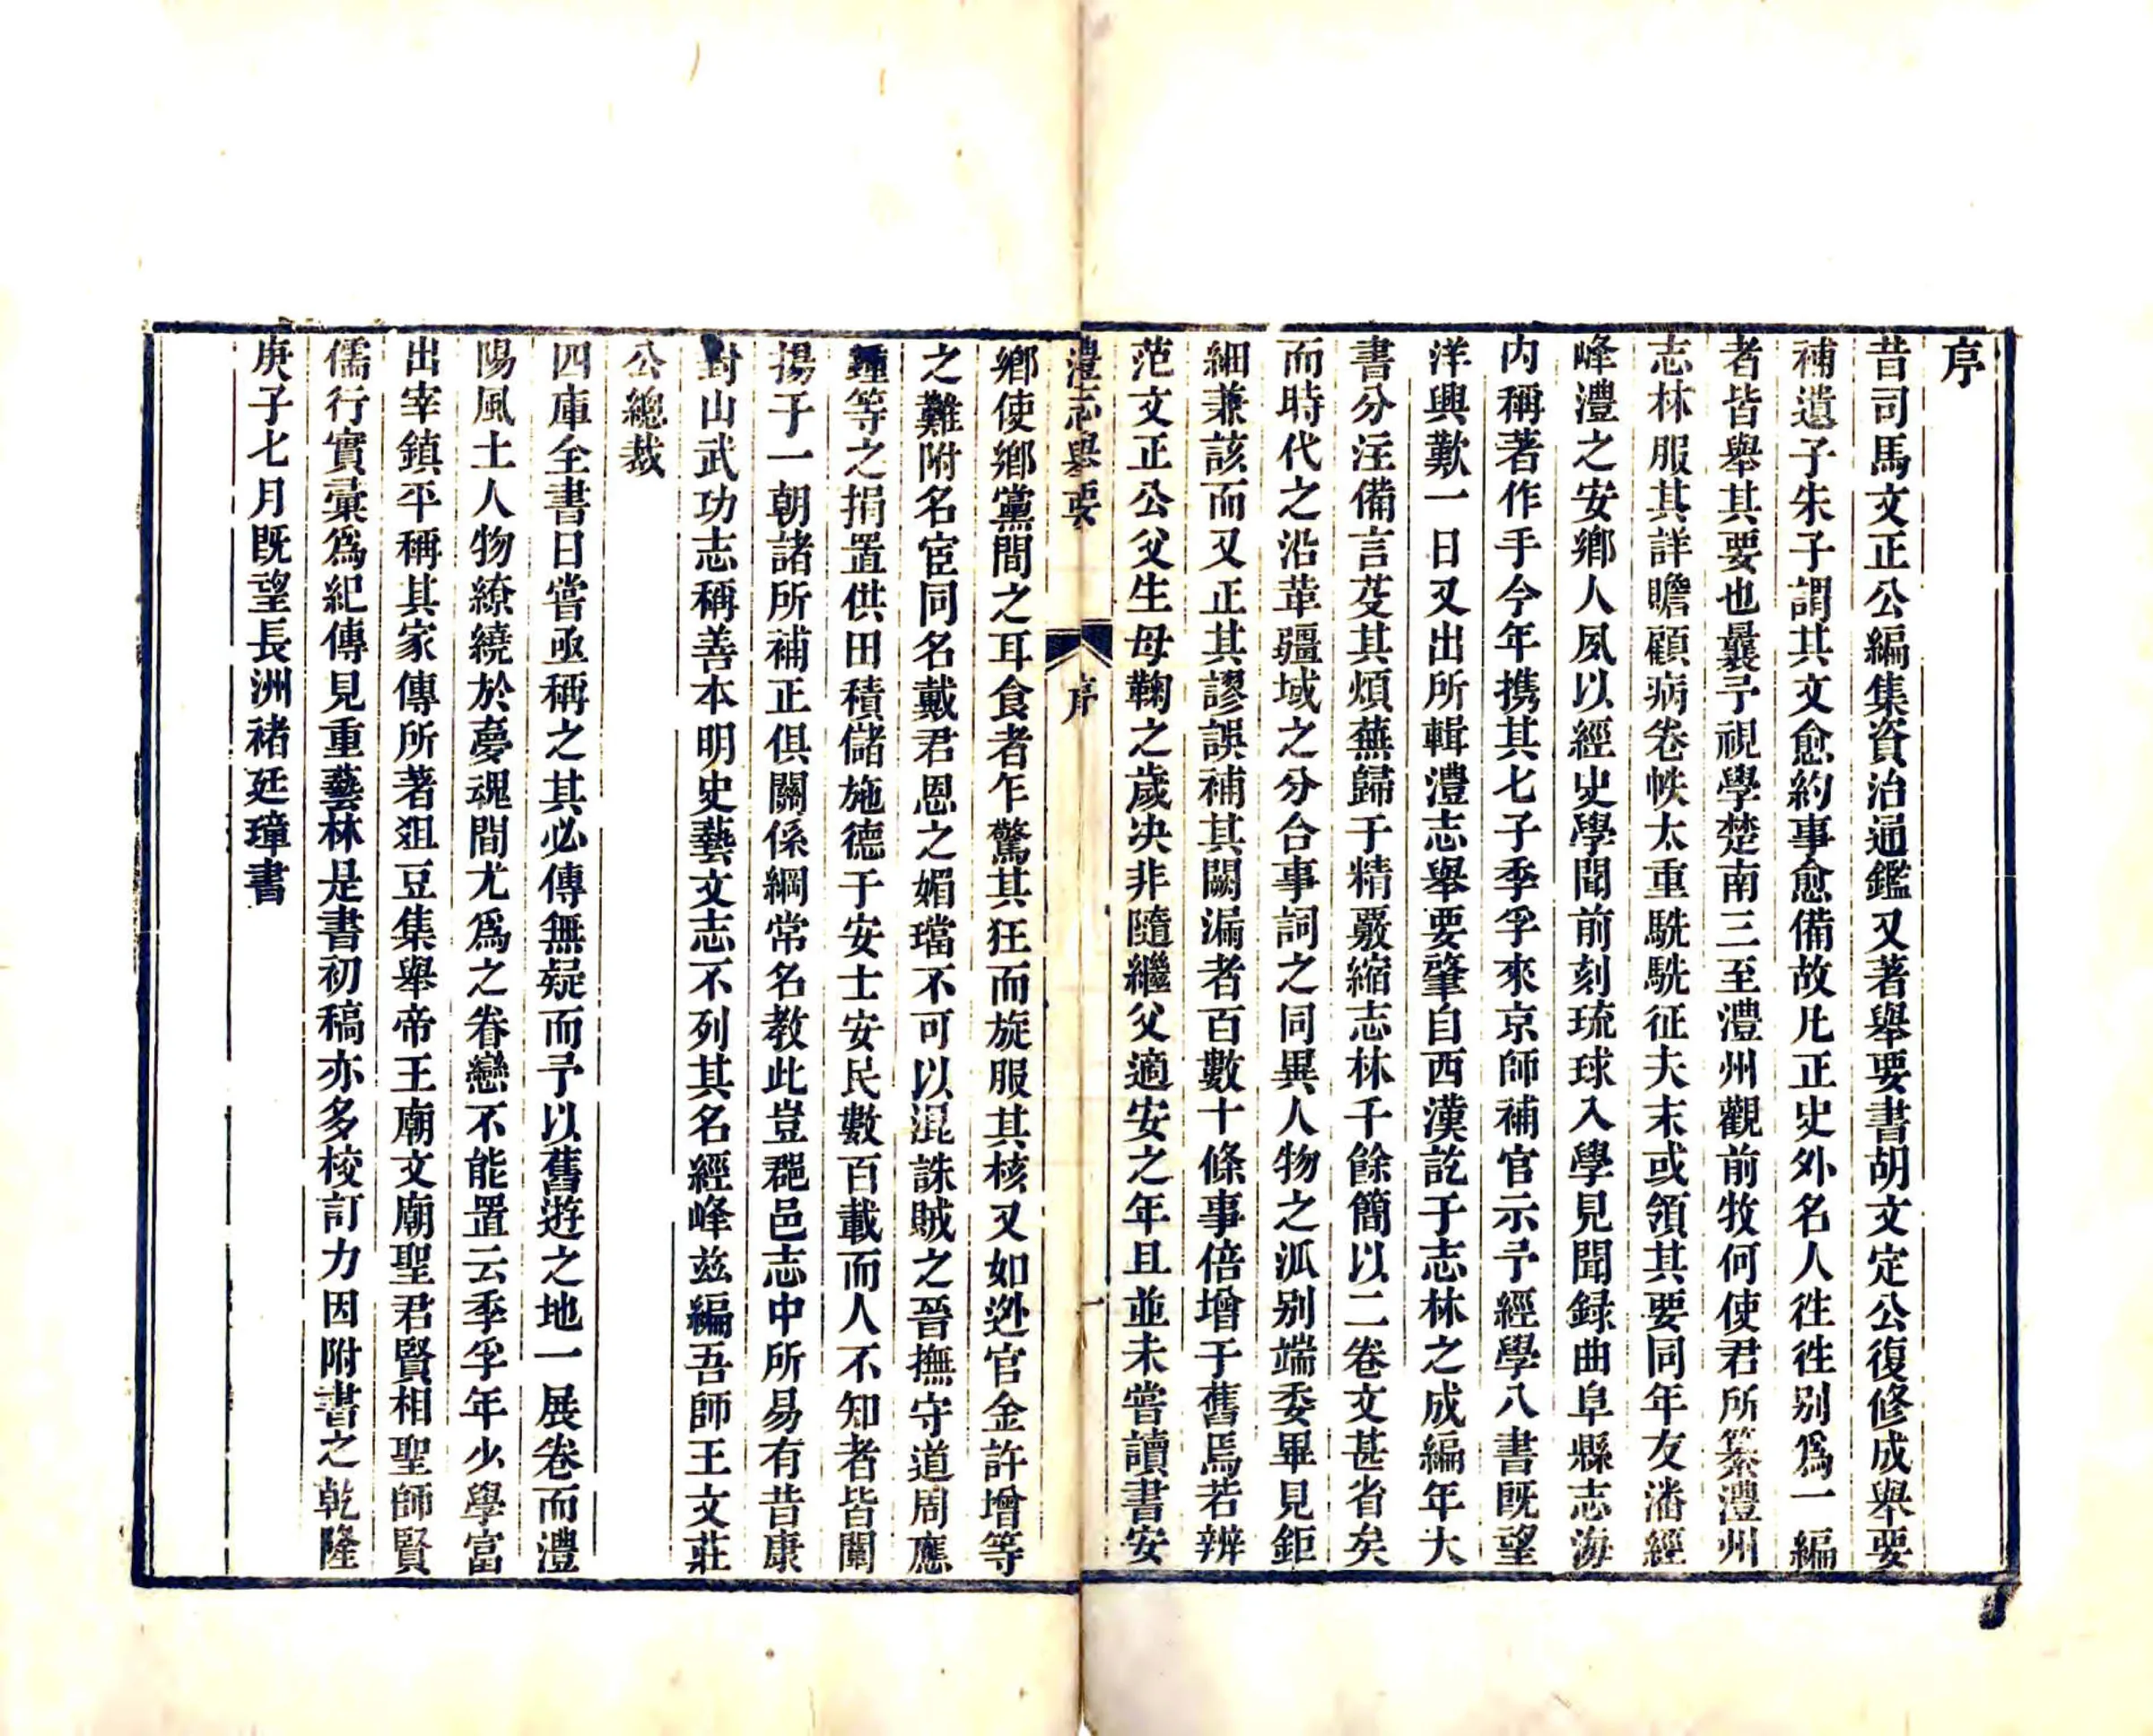 序
昔司馬文正公編集資治通鑑又著舉要書胡文定公復修成舉要
補遺子朱子謂其文愈約事愈備故凡正史外名人徃徃别爲一編
者皆舉其要也曩予視學楚南三至澧州觀前牧何使君所纂澧州
志林服其詳贍顧病卷帙太重駪駪征夫未或領其要同年友潘經
峰澧之安鄉人夙以經史學聞前刻琉球入學見聞録曲阜縣志海
内稱著作手今年携其七子季孚來京師補官示予經學八書既望
洋興歎一日又出所輯澧志舉要肇自西漢訖于志林之成編年大
書分注備言芟其煩蕪歸于精覈縮志林千餘簡以二卷文甚省矣
而時代之沿革疆域之分合事詞之同異人物之泒别端委畢見鉅
細兼該而又正其謬誤補其闕漏者百數十條事倍增于舊焉若辨
范文正公父生母鞠之歲决非隨繼父適安之年且並未嘗讀書安
澧志舉要
序
一
鄉使鄉黨間之耳食者乍驚其狂而旋服其核又如逊官金許增等
之難附名宦同名戴君恩之媚璫不可以混誅賊之晉撫守道周應
鍾等之捐置供田積儲施德于安士安民數百載而人不知者皆闡
揚于一朝諸所補正俱關係綱常名教此豈郡邑志中所易有昔康
對山武功志稱善本明史藝文志不列其名經峰兹編吾師王文莊
公總裁
四庫全書日嘗亟稱之其必傳無疑而予以舊遊之地一展卷而澧
陽風土人物繚繞於夢魂間尤爲之眷戀不能置云季孚年少學富
出宰鎮平稱其家傳所著俎豆集舉帝王廟文廟聖君賢相聖師賢
儒行實彙爲紀傳見重藝林是書初稿亦多校訂力因附書之乾隆
庚子七月既望長洲褚廷璋書